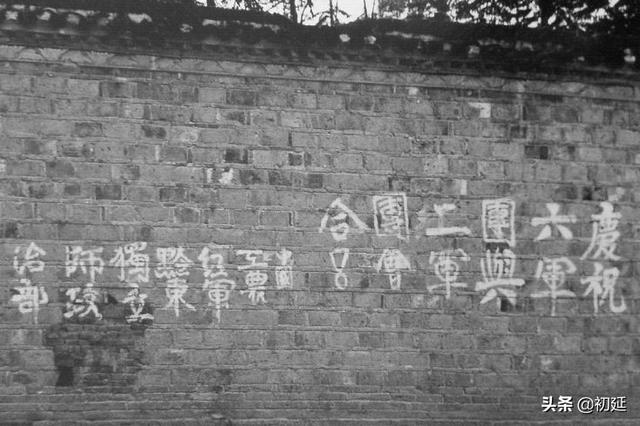 慶祝
六軍
團與
二軍
團會
合!!
中國
工農
紅軍
黔東
獨立
師政
治部
头条 @初延